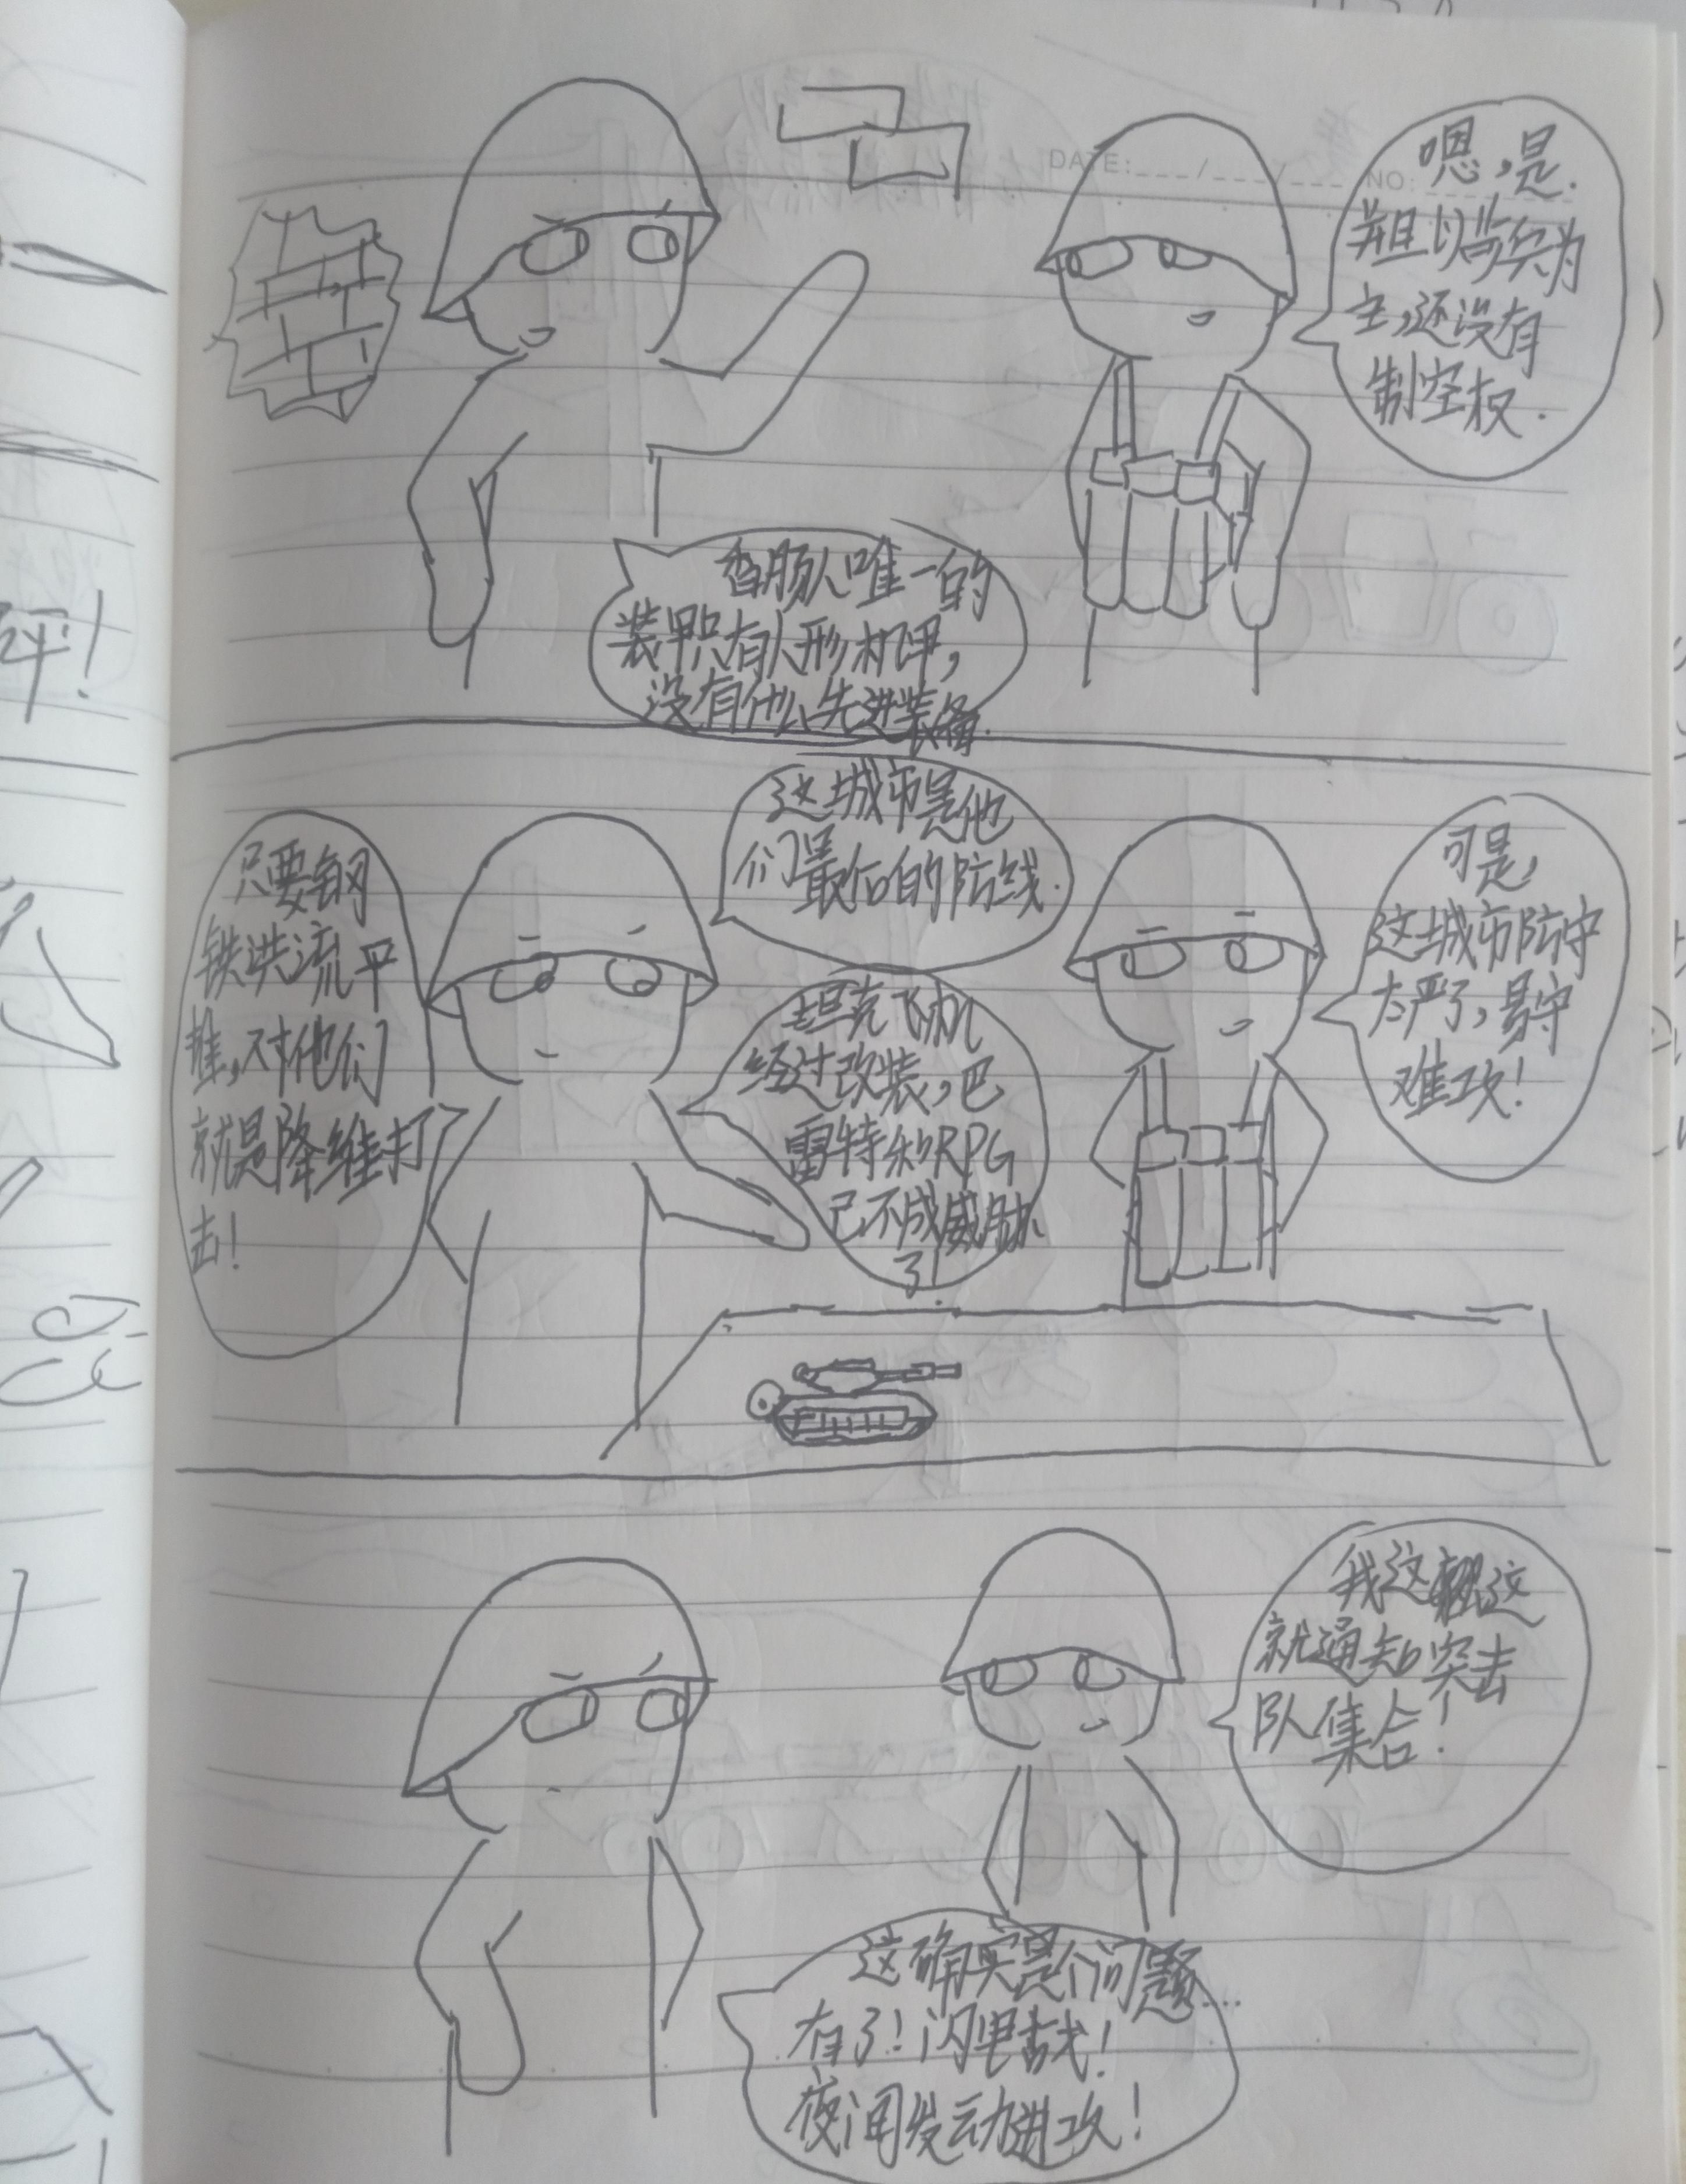 DATE: / / NO:
香肠人唯一的
装甲只有人形机甲,
没有什么先进装备.
嗯,是.
并且以步兵为
主,还没有
制空权.
这城市是他
们最后的防线.
坦克飞机
经过改装,巴
雷特和RPG
已不成威胁
了!
只要钢
铁洪流平
推,对他们
就是降维打
击!
可是,
这城市防守
太严了,易守
难攻!
这确实是个问题....
有了!闪电战!
夜间发动进攻!
我这
这
就通知突击
队集合!